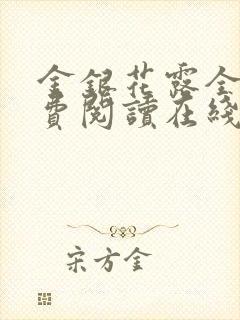 金銀花露全
費閱讀在綫
宋方金